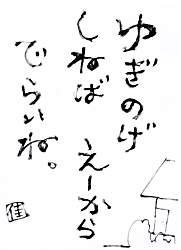 ゆぎのげ
しねば えーから
でらいね。